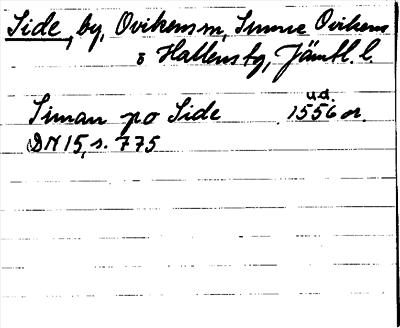 Side, by, Ovikens sn, Sunne Ovikens
o Hallens tg, Jämtl. l.
u.d.
Siman po Side 1556 or.
DN 15, s. 775